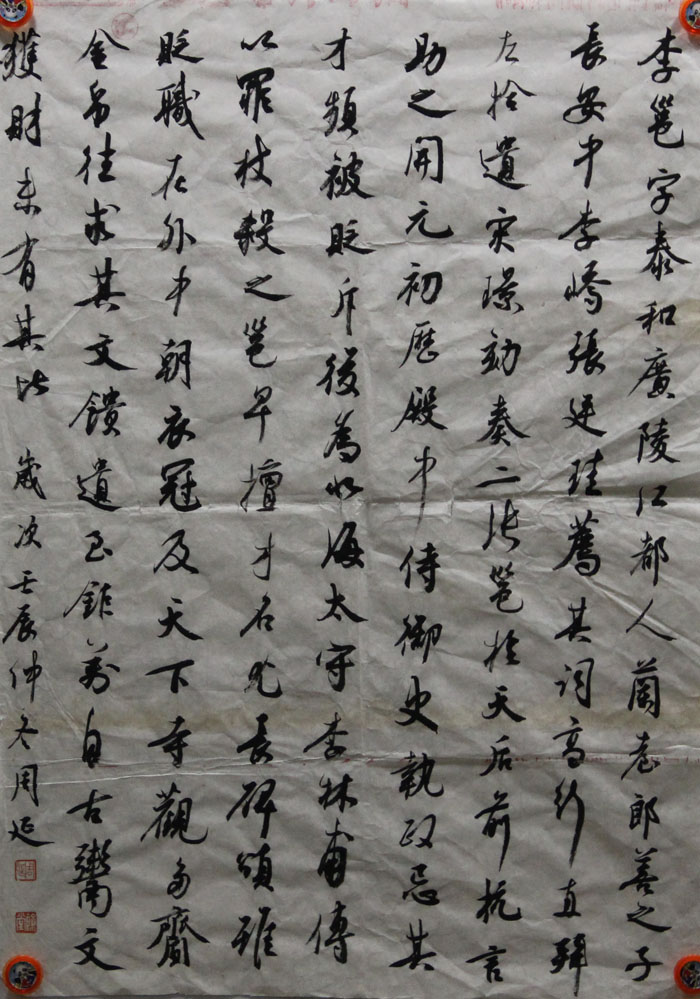 李邕字泰和廣陵江都人蘭臺郎善之子
長安中李嶠張廷珪薦其詞高行直拜
左拾遺宋璟劾奏二張邕於天后前抗言
助之開元初歷殿中侍御史執政忌其
才頻被貶斥後為北海太守李林甫傅
以罪杖殺之邕早擅才名尤長碑頌雖
貶職在外中朝衣冠及天下寺觀多齎
金帛往求其文饋遺至鉅萬自古鬻文
獲財未有其比 歲次壬辰仲冬周延